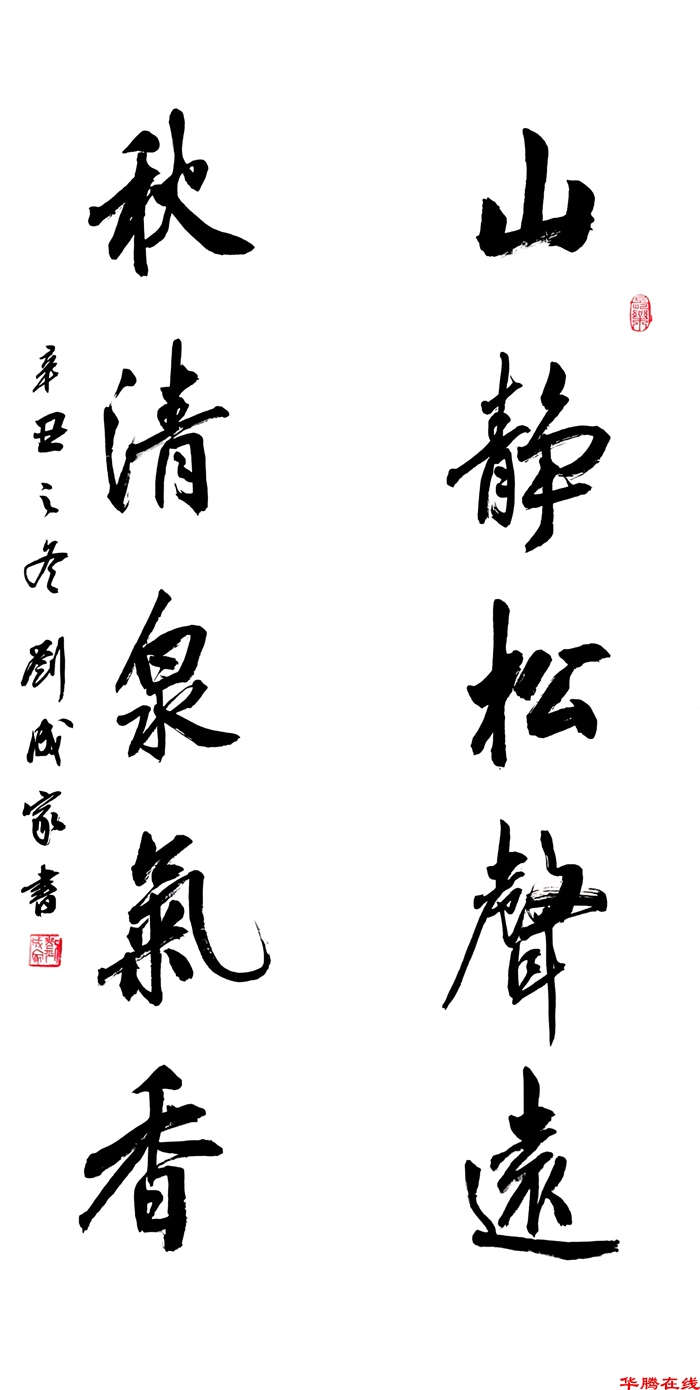 山静松聲遠
秋清泉氣香
辛丑之冬劉成家書
华腾在线